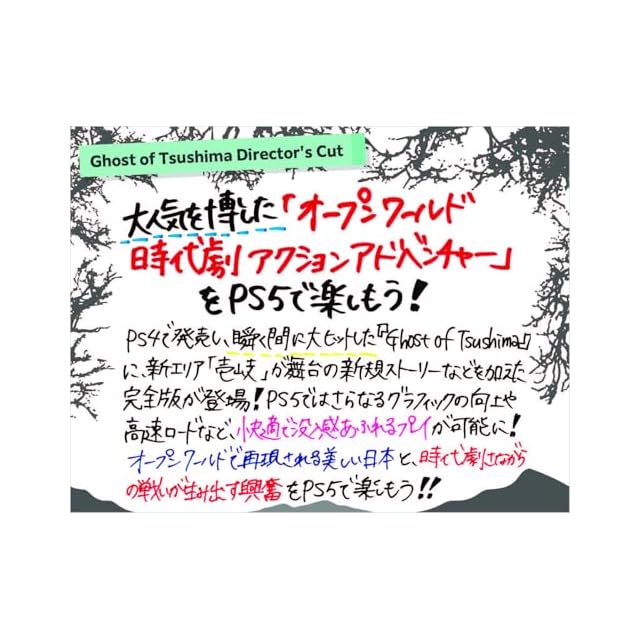 Ghost of Tsushima Director's Cut
大人気を博した「オープンワールド
時代劇アクションアドベンチャー」
をPS5で楽しもう!
PS4で発売し、瞬く間に大ヒットした『Ghost of Tsushima』
に、新エリア「壱岐」が舞台の新規ストーリーなどを加えた
完全版が登場!PS5ではさらなるグラフィックの向上や
高速ロードなど、快適で没入感あふれるプレイが可能に!
オープンワールドで再現される美しい日本と、時代劇さながら
の戦いが生み出す興奮をPS5で楽しもう!!